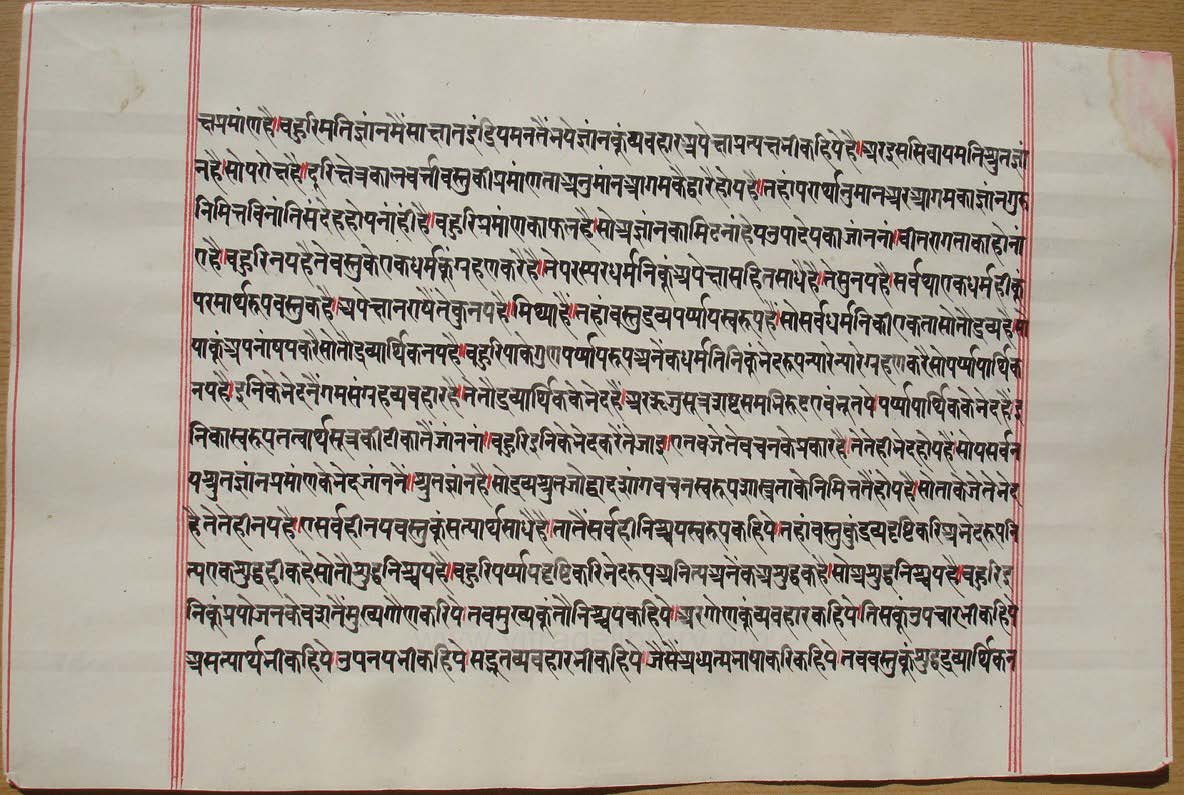 क्षप्रमांण है। बहुरि मतिज्ञांनमैं साक्षात इंद्रिय मनतैं भये ज्ञांनकूं व्यवहार अपेक्षा प्रत्यक्ष भी कहिये है। अर इस सिवाय मति श्रुतज्ञां
न है। सो परोक्ष है। दूरि क्षेत्र कालवर्त्ती वस्तुकी प्रमांणता अनुमांन आगमकै द्वारै होय है। तहां परार्थानुमांन अर आगमका ज्ञांन गुरु
निमित्त विनां निसंदेह होय नांही है। बहुरि प्रमांणका फल है। सो अज्ञांनका मिटनां हेय उपादेयका जांननां। वीतरागताका होनां
ए है। बहुरि नय है ते वस्तुके एक धर्मकूं ग्रहण करै है। ते परस्पर धर्मनिकूं अपेक्षा सहित साधै है। ते सुनय है। सर्वथा एक धर्महीकूं
परमार्थरूप वस्तु कहै। अपेक्षा न राषै ते कुनय है। मिथ्या है। तहां वस्तु द्रव्य पर्य्याय स्वरूप है। सो सर्व धर्मनिकी एकता सो तौ द्रव्य है। सो
याकूं अपनां विषय करै सो तौ द्रव्यार्थिक नय है। बहुरि याके गुण पर्य्यायरूप अनेक धर्म तिनिकूं भेदरूप न्यारे न्यारे ग्रहण करै सो पर्य्यायार्थिक
नय है। इनिके भेद नैगम संग्रह व्यवहार है। ते तौ द्रव्यार्थिकके भेद है। अर ऋजुसूत्र शब्द समभिरूढ एवंभूत ये पर्य्यायार्थिकके भेद है। इ
निका स्वरूप तत्वार्थसूत्रकी टीकातैं जांननां। बहुरि इनिके भेद करें तें जाइ एत वजेते वचनके प्रकार है। तेतेही भेद होय है। सो पय वर्तन
य श्रुतज्ञांन प्रमांणके भेद जांननें। श्रुतज्ञांन है। सो द्रव्यश्रुत जो द्वादशांग वचन स्वरूप शास्त्र ताके निमित्ततैं होय है। सो ताके जेते भेद
है तेतेही नय है। ए सर्वही नय वस्तुकूं सत्यार्थ साधै है। तातैं सर्वही निश्चय स्वरूप कहिये। तहां वस्तुकुं द्रव्यदृष्टि करि अभेदरूप नि
त्य एक शुद्धही कहै सो तौ शुद्ध निश्चय है। बहुरि पर्य्यायदृष्टि करि भेदरूप अनित्य अनेक अशुद्ध कहै। सो अशुद्ध निश्चय है। बहुरि इ
निकूं प्रयोजनके वशतैं मुख्य गौण करिये। तब मुख्यकूं तौ निश्चय कहिये। अर गौणकूं व्यवहार कहिये। तिसकूं उपचार भी कहिये
असत्यार्थ भी कहिये। उपनय भी कहिये। सद्भूत व्यवहार भी कहिये। जैसैं अध्यात्मभाषा करि कहिये। तब वस्तुकूं शुद्ध द्रव्यार्थिक न